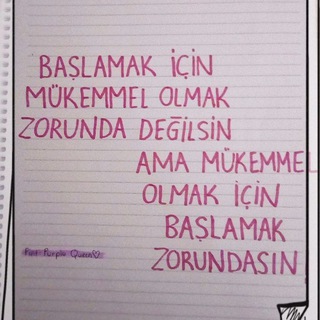 BAŞLAMAK İÇİN
MÜKEMMEL OLMAK
ZORUNDA DEĞİLSİN
AMA MÜKEMMEL
OLMAK İÇİN
BAŞLAMAK
ZORUNDASIN
Purple Queen♡